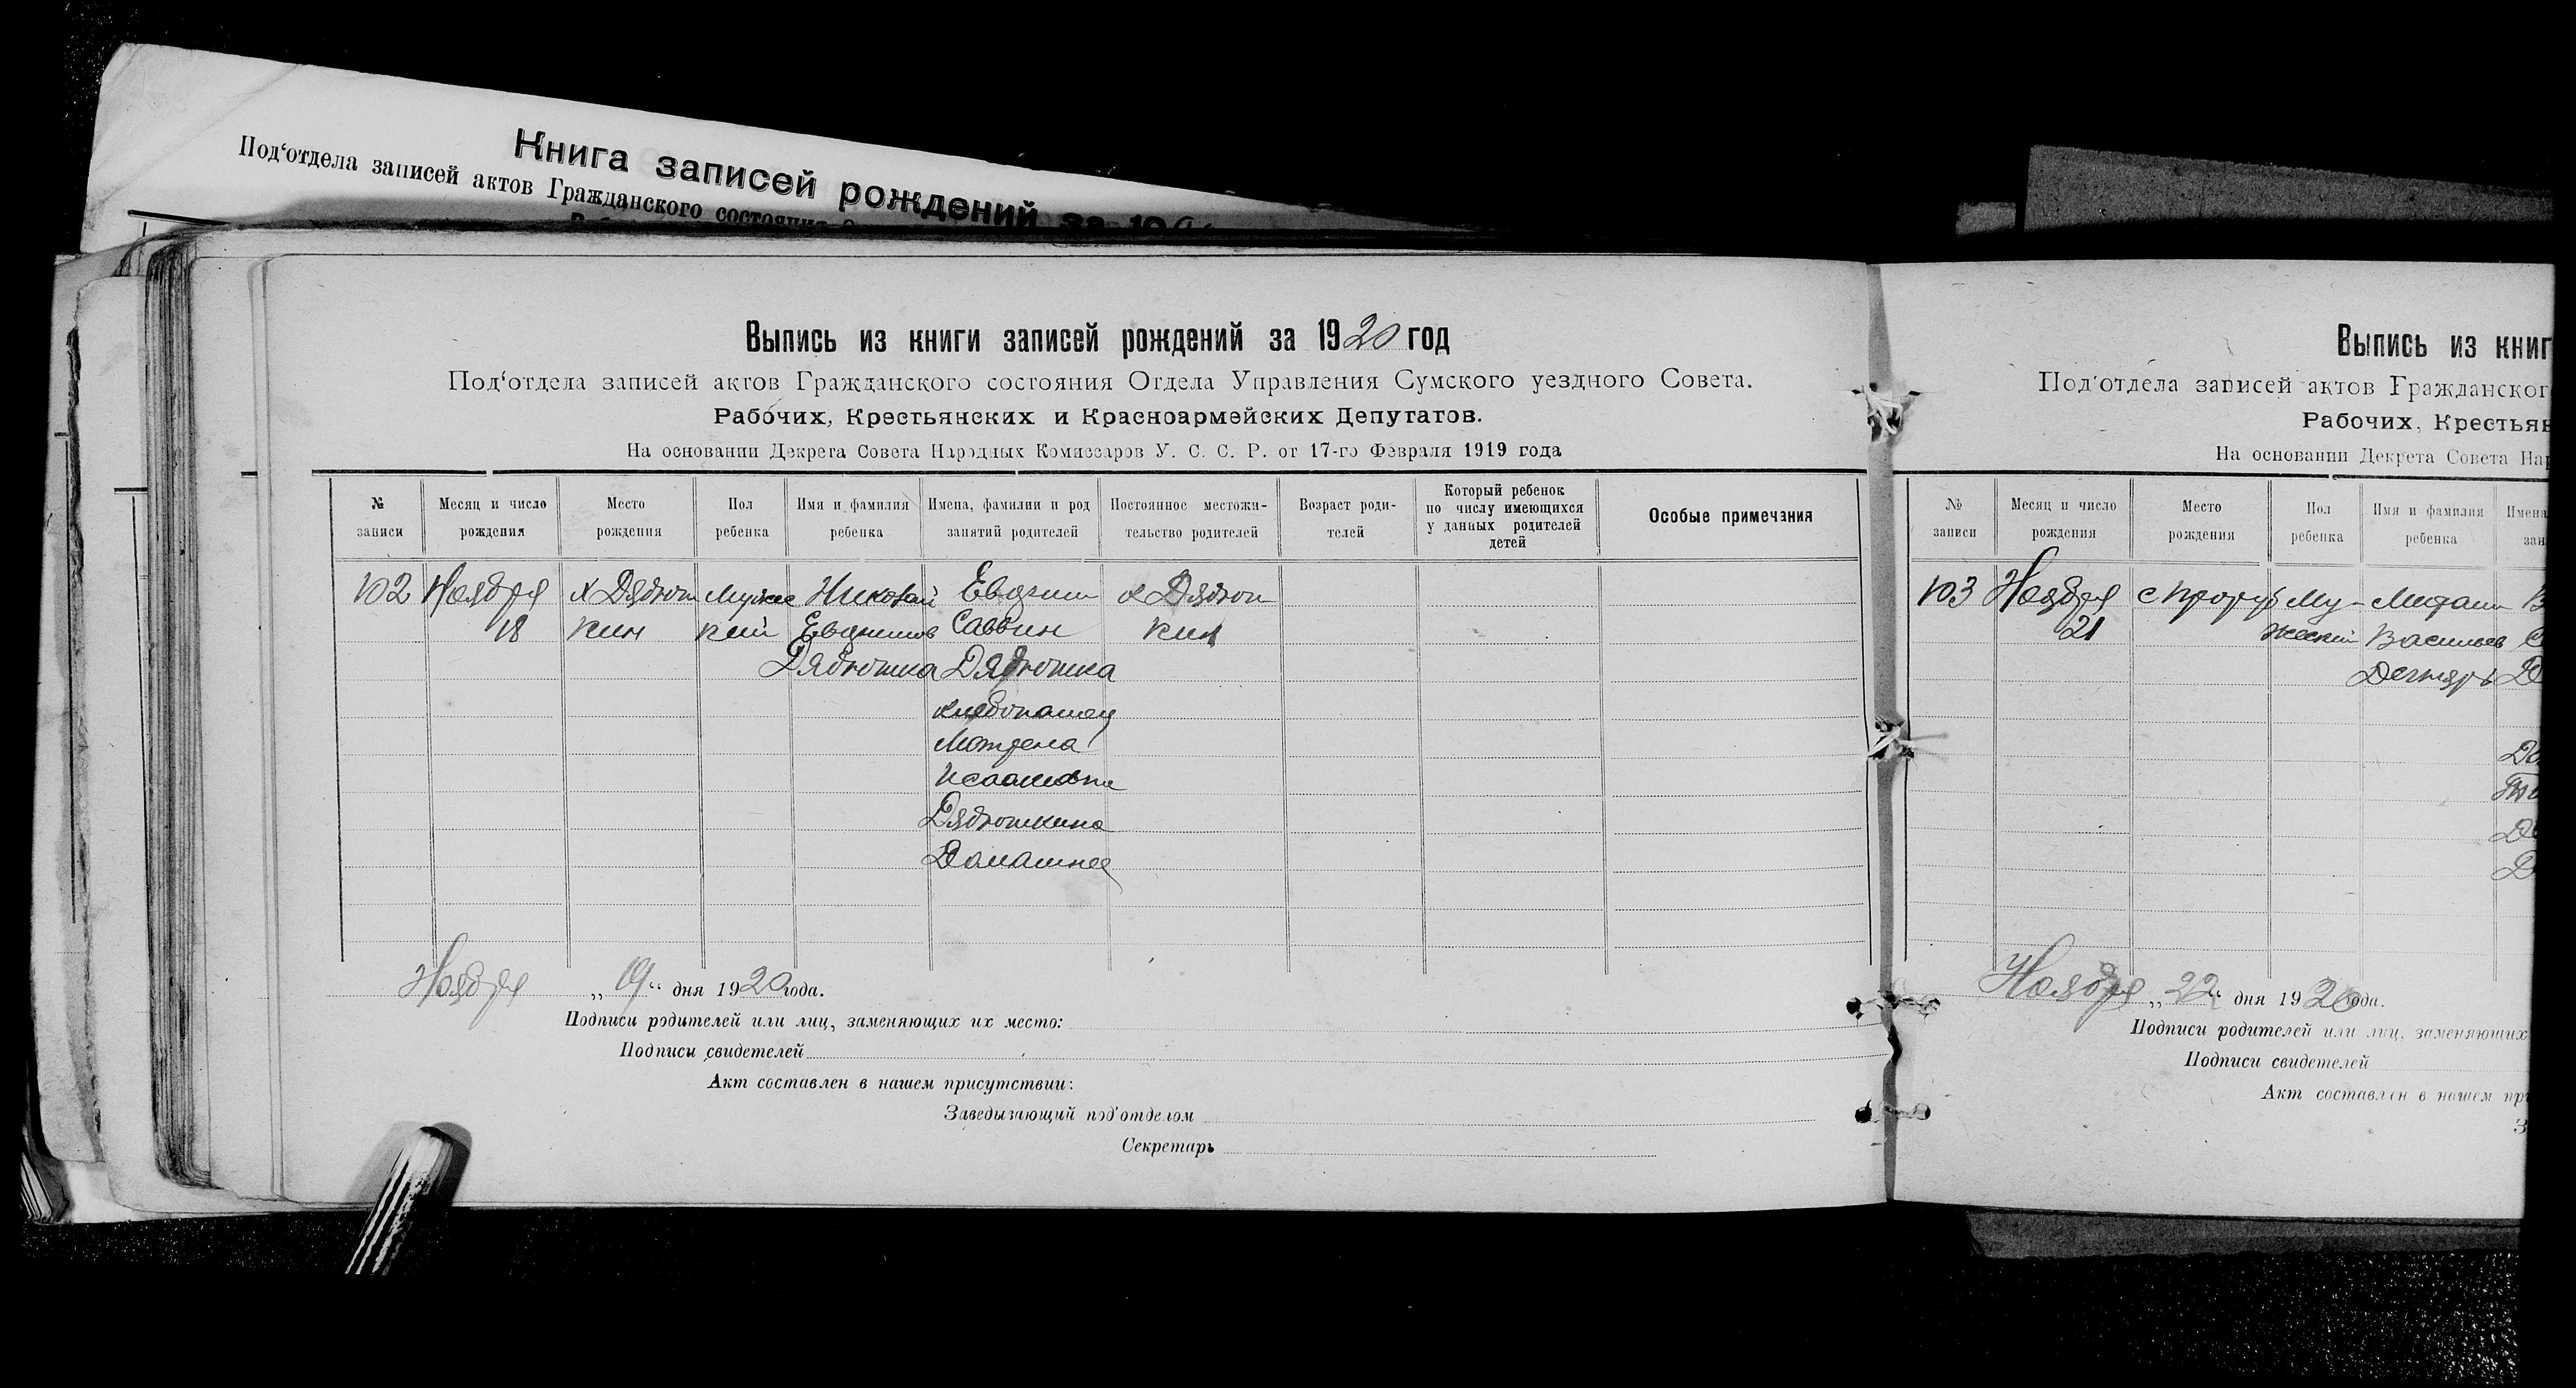 Книга записей рождений за 19
Под‘отдела записей актов Гражданского состояния
Выпись из книги записей рождений за 1920 год
Под‘отдела записей актов Гражданского состояния Отдела Управления Сумского уездного Совета.
Рабочих, Крестьянских и Красноармейских Депутатов.
На основании Декрета Совета Народных Комиссаров У. С. С. Р. от 17-го Февраля 1919 года
№ записи
Месяц и число рождения
Место рождения
Пол ребенка
Имя и фамилия ребенка
Имена, фамилии и род занятий родителей
Постоянное местожительство родителей
Возраст родителей
Который ребенок по числу имеющихся у данных родителей детей
Особые примечания
102
Ноября
18
х Дядюш
кин
Мужес
кий
Николай
Евдокимов
Дядюшка
Евдоким
Саввин
Дядюшка
хлебопашец
Мотрена
Исааковна
Дядюшкина
Домашнее
х Дядюш
кин
Ноября „19“ дня 1920 года.
Подписи родителей или лиц, заменяющих их место:
Подписи свидетелей
Акт составлен в нашем присутствии:
Заведывающий под‘отделом
Секретарь
Выпись из книг
Под‘отдела записей актов Гражданског
Рабочих, Крестьян
На основании Декрета Совета Нар
№ записи
Месяц и число рождения
Место рождения
Пол ребенка
Имя и фамилия ребенка
Имена
зан
103
Ноября
21
Му-
жеский
Васильев
Дегтярь
Ноября „22“ дня 1920 года.
Подписи родителей или лиц, заменяющих
Подписи свидетелей
Акт составлен в нашем пр
З